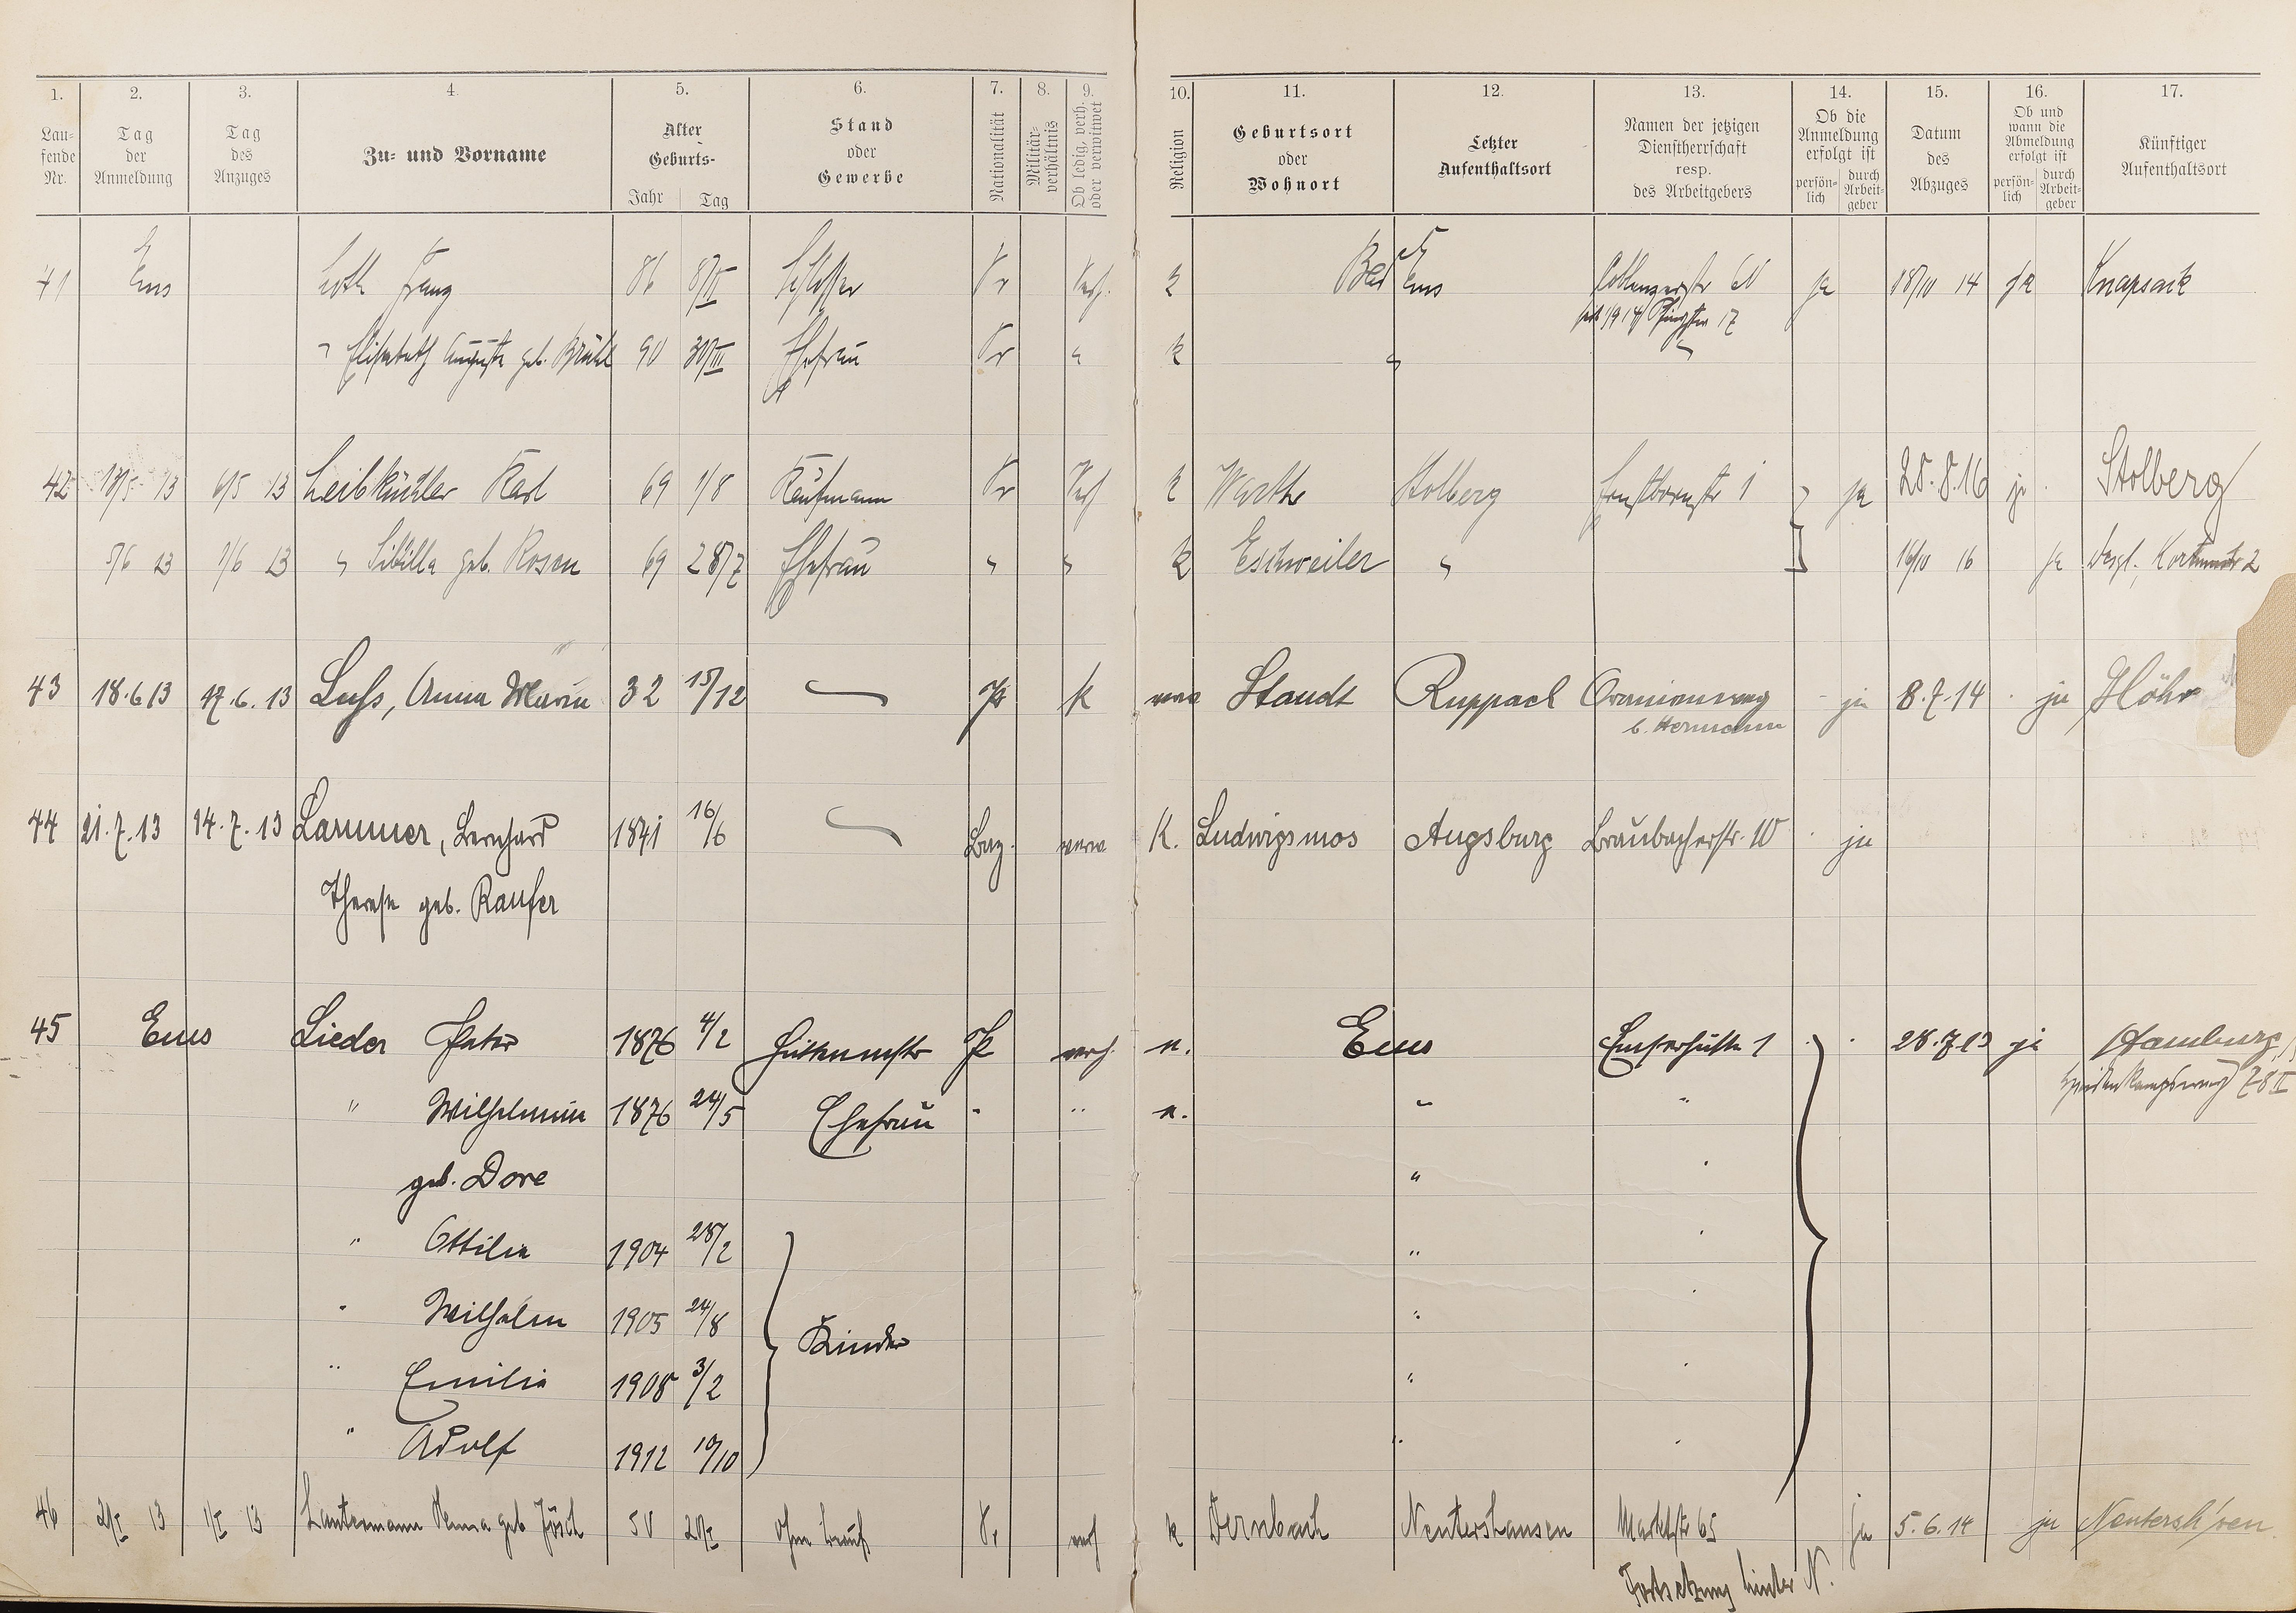 1. 2. 3. 4. 5. 6. 7. 8. 9. 10. 11. 12. 13. 14. 15. 16. 17.
Lau-
fende
Nr.
Tag
der
Anmeldung
Tag
des
Anzuges
Zu- und Vorname
Alter
Geburts-
Jahr Tag
Stand
oder
Gewerbe
Nationalität
Militär-
verhältnis
Ob ledig, verh.
oder verwitwet
Religion
Geburtsort
oder
Wohnort
Letzter
Aufenthaltsort
Namen der jetzigen
Dienstherrschaft
resp.
des Arbeitgebers
Ob die
Anmeldung
erfolgt ist
persön-
lich
durch
Arbeit-
geber
Datum
des
Abzuges
Ob und
wann die
Abmeldung
erfolgt ist
persön-
lich
durch
Arbeit-
geber
Künftiger
Aufenthaltsort
41 Ems Loth Franz 86 8/II Schlosser Pr Verh. k Bad Ems Coblenzerstr 60 ja 18/10 14 ja Knapsack
17
" Elisabeth Auguste geb. Brühl 90 30/III Ehefrau Pr " k "
42 13 6/5 13 Leibküchler Karl 69 1/8 Kaufmann Pr Verh k Stolberg 1 ja 28.8.16 ja Stolberg
5/6 13 1/6 13 " Sibilla geb. Rosen 69 28/7 Ehefrau " " k Eschweiler " 16/10 16 ja desgl. 2
43 18.6 13 17.6.13 Luss, Anna Maria 32 15/12 Pr k verw Staudt Ruppach Oranienweg ja 8.7.14 ja Höhr
b. Hermann
44 21.7.13 14.7.13 Lammer, Bernhard 1841 16/6 Bay. verw K. Ludwigsmos Augsburg Braubacherstr. 10 ja
Therese geb. Raufer
45 Ems Lieder Peter 1876 4/2 Hüttenmstr Pr verh. e. Ems Emserhütte 1 28.7.13 ja Hamburg,
78 II
" Wilhelmine 1876 24/5 Ehefrau " " e. " "
geb. Dore "
" Ottilie 1904 28/2 "
" Wilhelm 1905 24/8 Kinder "
" Emilie 1908 3/2 "
" Adolf 1912 10/10 "
46 13 13 Lautermann Anna geb Jösch 50 ohne Beruf Pr verh k Dernbach Nentershausen Marktstr 65 ja 5.6.14 ja Nentersh/sen
Fortsetzung hinter N.